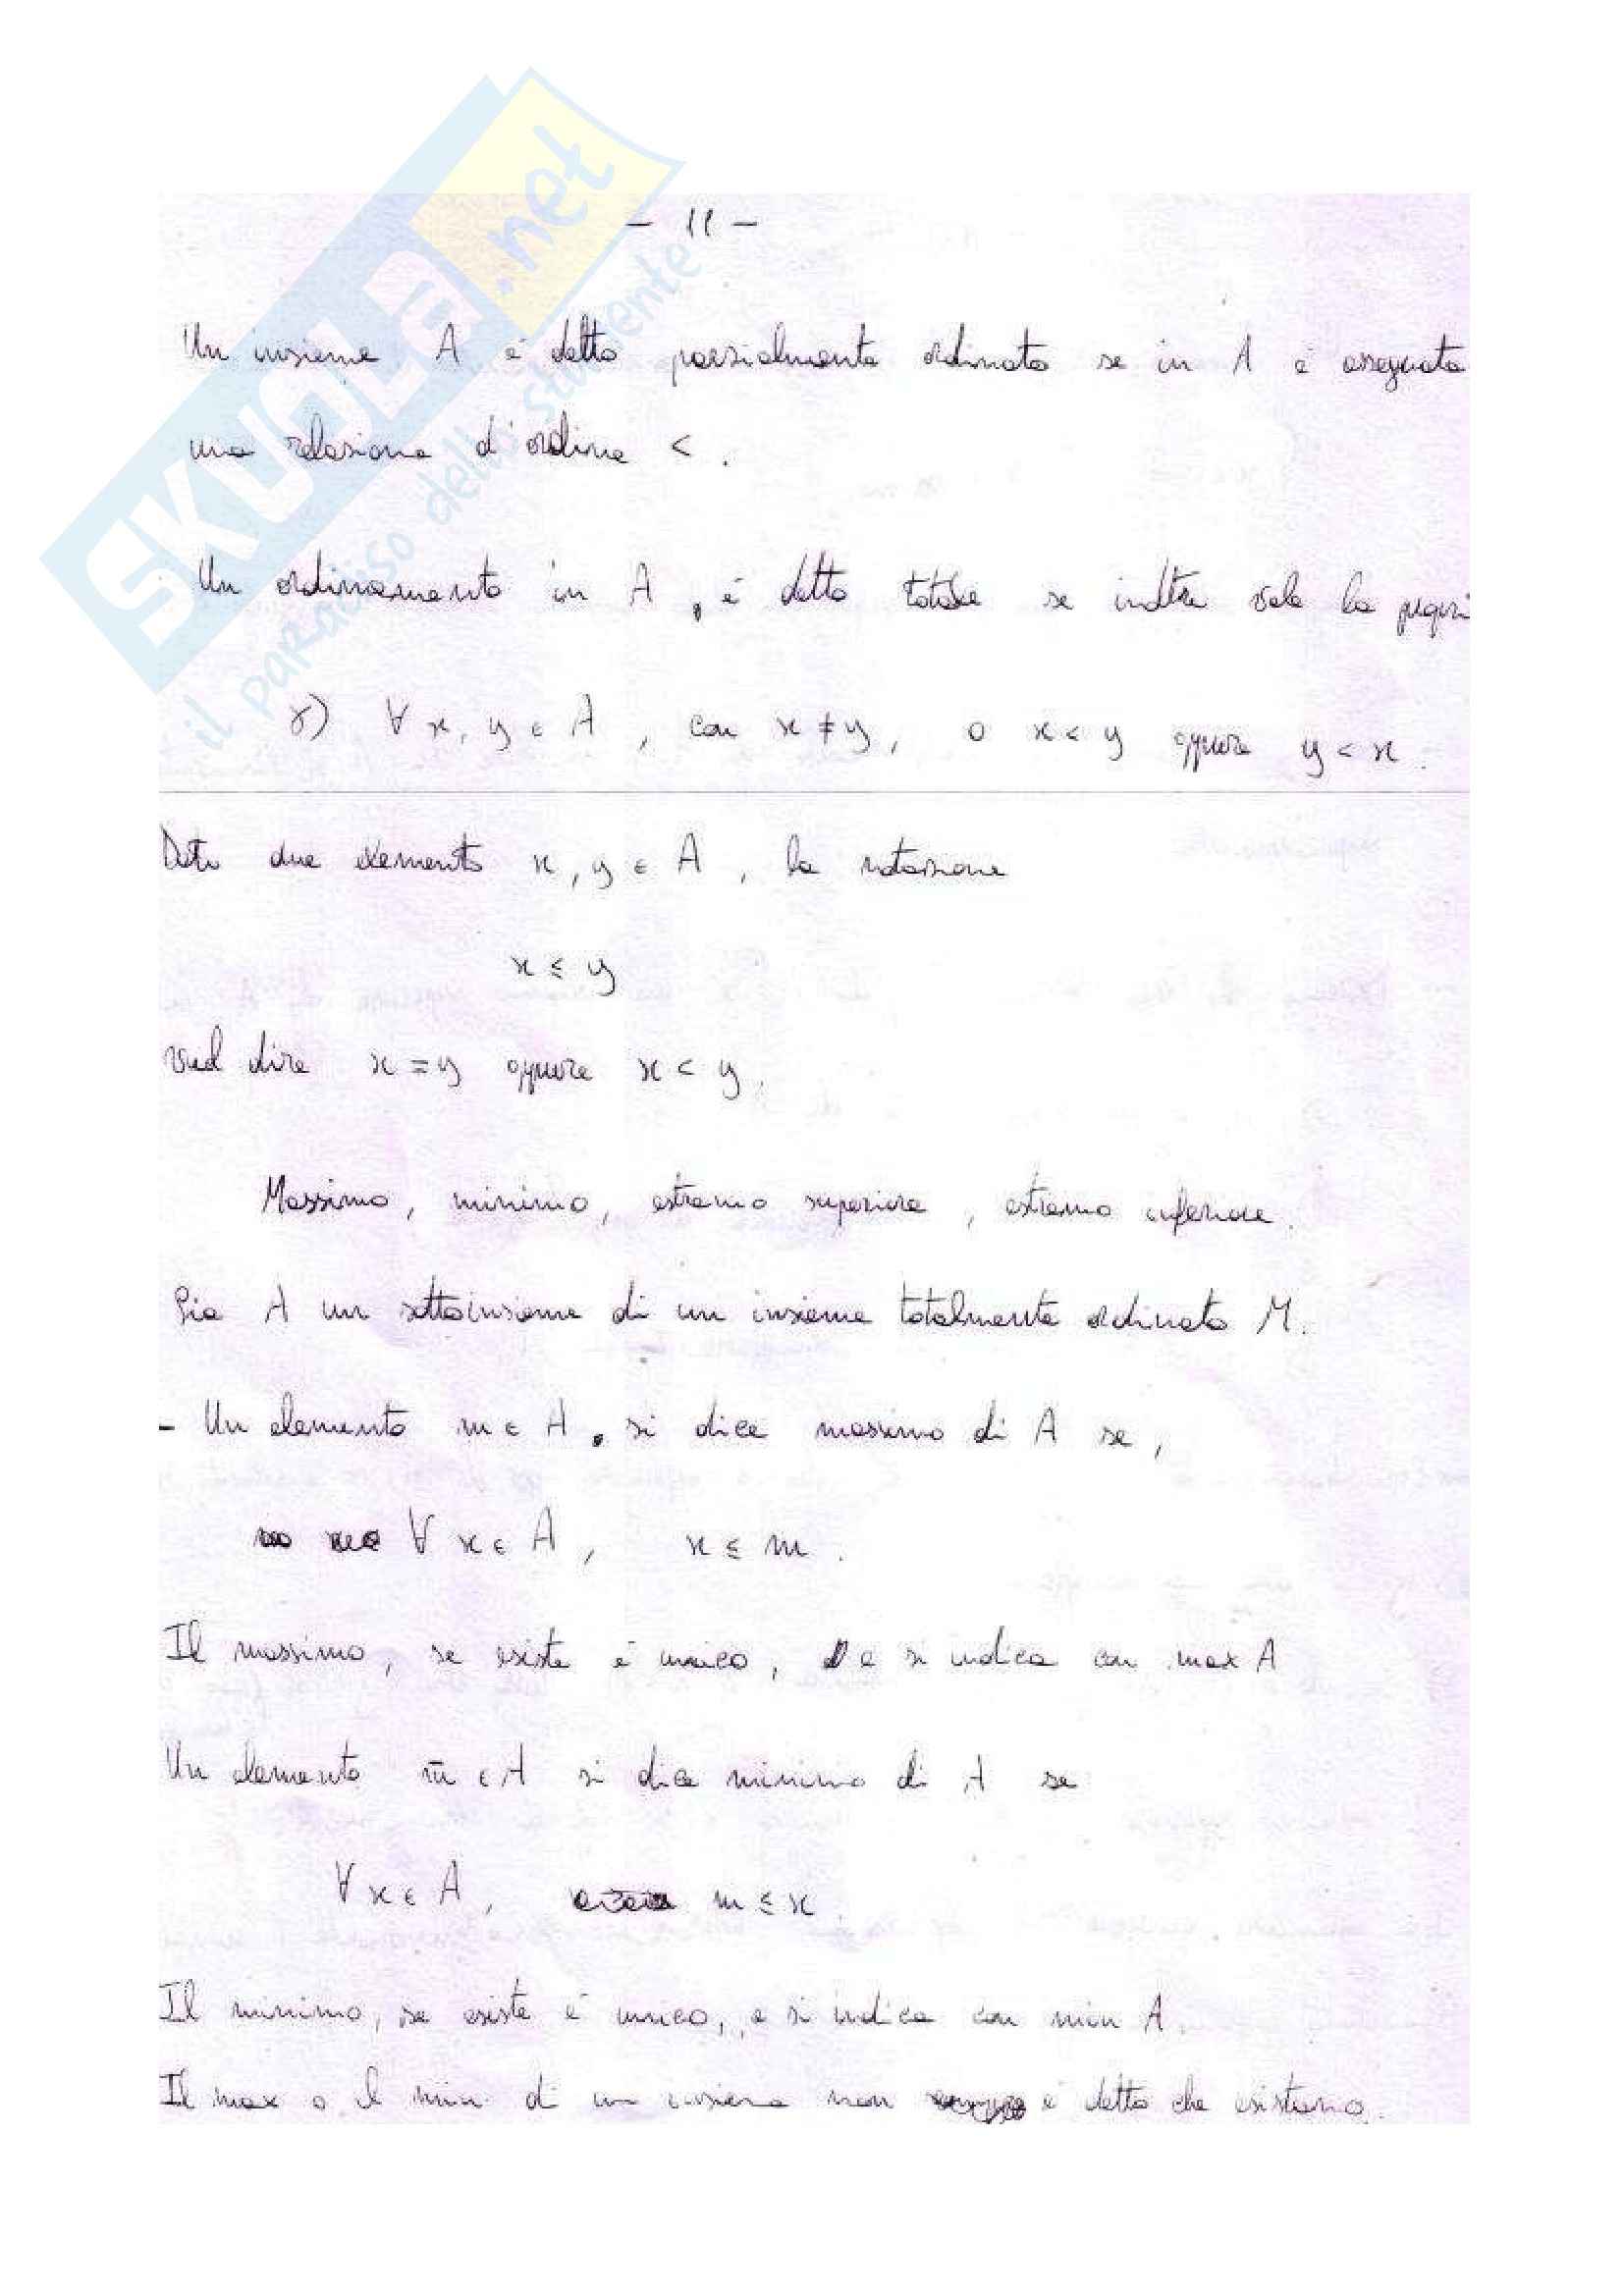 SKUOLA.net
il paradiso dello studente
- 11 -
Un insieme A è detto parzialmente ordinato se in A è assegnata
una relazione d'ordine < .
Un ordinamento in A, è detto totale se inoltre vale la
γ) ∀ x, y ∈ A , con x ≠ y , o x < y oppure y < x .
Dati due elementi x, y ∈ A , la notazione
x ≤ y
vuol dire x = y oppure x < y .
Massimo, minimo, estremo superiore, estremo inferiore.
Sia A un sottoinsieme di un insieme totalmente ordinato M.
- Un elemento m ∈ A, si dice massimo di A se,
∀ x ∈ A , x ≤ m .
Il massimo, se esiste è unico, e si indica con max A
Un elemento m̄ ∈ A si dice minimo di A se
∀ x ∈ A , m ≤ x .
Il minimo, se esiste è unico, e si indica con min A.
Il max o il min di un insieme non è detto che esistano.